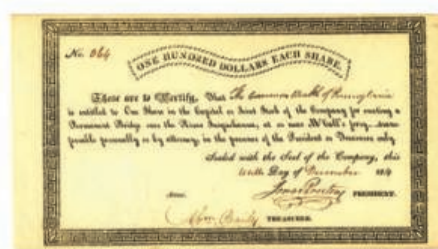 No. 364
ONE HUNDRED DOLLARS EACH SHARE.
These are to Certify, That The Commonwealth of Pennsylvania
is entitled to One Share in the Capital or Joint Stock of the Company for erecting a
Permanent Bridge over the River Susquehanna, at or near M'Call's ferry, trans-
ferable personally or by attorney, in the presence of the President or Treasurer only
Sealed with the Seal of the Company, this
Day of December 181
Attest. PRESIDENT.
TREASURER.